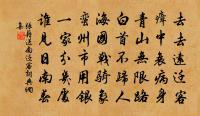 去去遠遷客
瘴中衰病身
青山無限路
白首不歸人
海國戰騎象
蠻州市用銀
一家分幾處
誰見日南春
張籍送南遷客詞典網
集